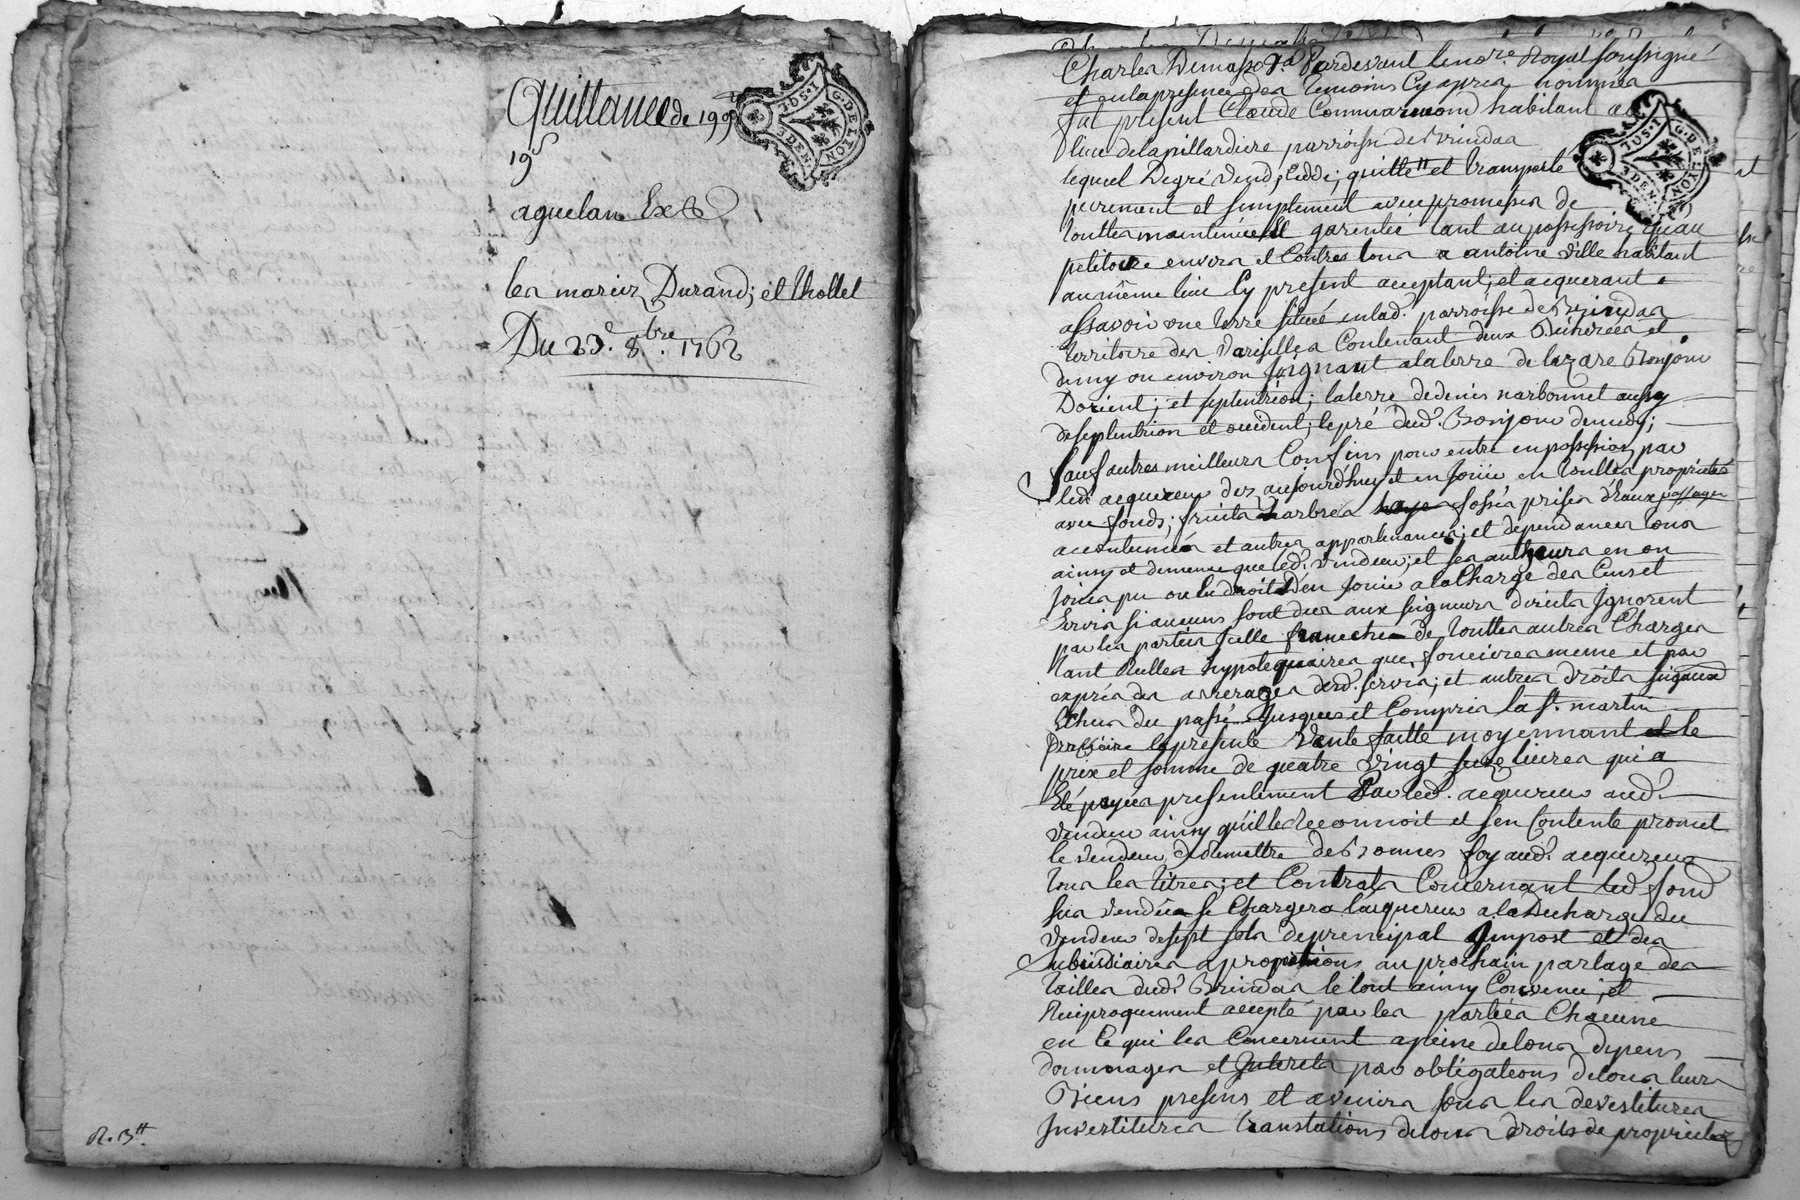 Quittance de 199ᵗᵗ
19ˢ
aquelan Exb
les mariez Durand; et Thollet
Du 23ᵉ 8ᵇʳᵉ 1762
R. 3ᵗᵗ
2 SOLS
3 DEN.
G. DE LYON
2 SOLS
3 DEN.
G. DE LYON
Pardevant le noʳᵉ Royal soussigné
et en la presence des temoins cy apres nommés
fut present Claude Commarmond habitant au
lieu de la pillardiere parroisse de Brindas
lequel de gré vend, cedde; quitte et transporte
purement et simplement avec promesses de
touttes maintenue et garentie tant au possessoire qu'au
petitoire envers et contres tous a antoine ville habitant
au même lieu cy present acceptant; et acquerant
assavoir une terre située en lad. parroisse de Brindas
territoire des contenant deux bicherées et
demy ou environ joignant a la terre de lazare Bonjour
Dorient; et septentrion; la terre de denis narbonnet aussy
de septentrion et occident; le pré dud. Bonjour de midy;
sauf autres meilleurs confins pour entrer en possession par
led. acquereur dez aujourdhuy et en jouir en touttes proprietés
avec fonds; fruits arbres haye fossés prises d'eaux passages
accoutumés et autres appartenances; et dependances tous
ainsy et de meme que led. vendeur; et ses autheurs en on
jouis pu ou du droits d'en jouir a la charge des cens et
servis si aucuns sont dus aux seigneurs directs ignorent
par les parties icelle franche de touttes autres charges
tant rentes hypotequaires que foncieres meme et par
exprés des arrerages desd. servis; et autres droits seigneuriaux
echus du passé jusques et compris la Sᵗ. martin
la presente vente faitte moyennant et le
prix et somme de quatre vingt seize livres qui a
eté payées presentement par led. acquereur aud.
vendeur ainsy qu'il le reconnoit et s'en contente promet
le vendeur de remettre de bonnes foy aud. acquereur
tous les titres; et contrats concernant led. fond
sus vendu se chargera l'acquereur a la decharge du
vendeur de sept sols de principal d'impost et des
subsidiaires a proportions au prochain partage des
tailles dud. Brindas le tout ainsy convenu; et
reciproquement accepté par les parties chacune
en ce qui les concernent a peine de tous depens
dommages et interets par obligations de tous leurs
Biens presens et avenirs sous les devestitures
investitures translations de tous droits de proprietés